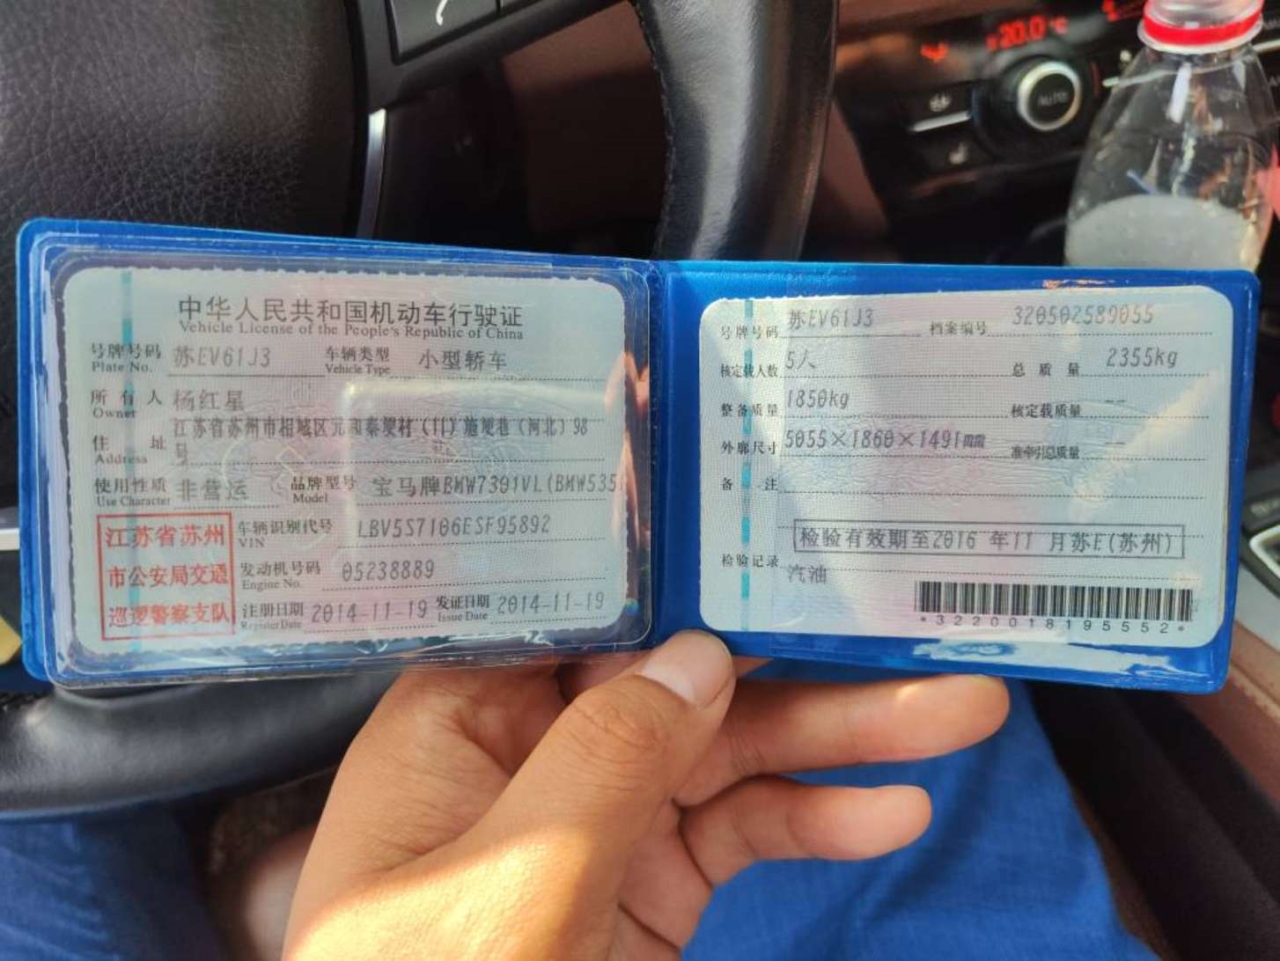 中华人民共和国机动车行驶证
Vehicle License of the People's Republic of China
号牌号码 苏EV61J3 车辆类型 小型轿车
Plate No. Vehicle Type
所有人 杨红星
Owner
住址 江苏省苏州市相城区元和秦埂村(11)施埂巷(河北)98
号
Address
使用性质 非营运 品牌型号 宝马牌BMW7301VL(BMW535
Use Character Model
江苏省苏州
市公安局交通
巡逻警察支队
车辆识别代号 LBV5S7106ESF95892
VIN
发动机号码 05238889
Engine No.
注册日期 2014-11-19 发证日期 2014-11-19
Register Date Issue Date
号牌号码 苏EV61J3 档案编号 320502589055
核定载人数 5人 总质量 2355kg
整备质量 1850kg 核定载质量 --
外廓尺寸 5055×1860×1491 准牵引总质量 --
备注
检验有效期至2016 年11 月苏E(苏州)
检验记录
汽油
*3220018195552*
20.0 °C
AUTO